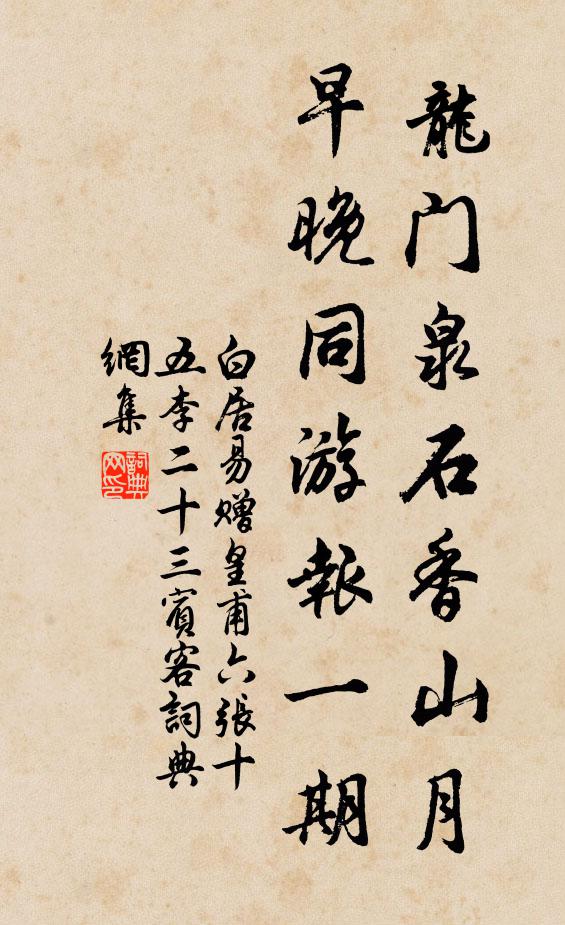 龍门泉石香山月
早晚同游報一期
白居易赠皇甫六張十
五李二十三賓客詞典
網集
詞典
网印